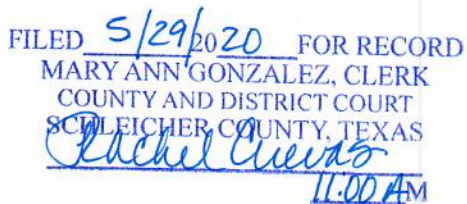 FILED 5/29/2020 FOR RECORD
MARY ANN GONZALEZ, CLERK
COUNTY AND DISTRICT COURT
SCHLEICHER COUNTY, TEXAS
Rachel Cuevas
11:00 AM